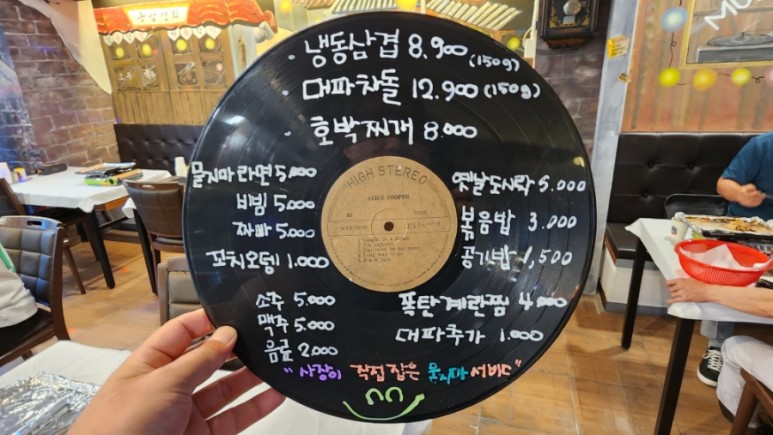 · 냉동삼겹 8.900 (150g)
· 대파차돌 12.900 (150g)
· 호박찌개 8.000
묻지마라면 5.000
비빔 5.000
짜빠 5.000
꼬치오뎅 1.000
소주 5.000
맥주 5.000
음료 2.000
HIGH STEREO
ALICE COOPER
SIDE
옛날도시락 5.000
볶음밥 3.000
공기밥 1,500
폭탄계란찜 4.000
대파추가 1.000
"사장이 직접 잡은 묻지마 서비스"